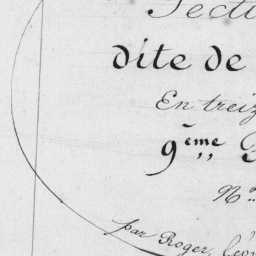 Secti
dite de
En treiz
9ème
N°
par Roger, Géo